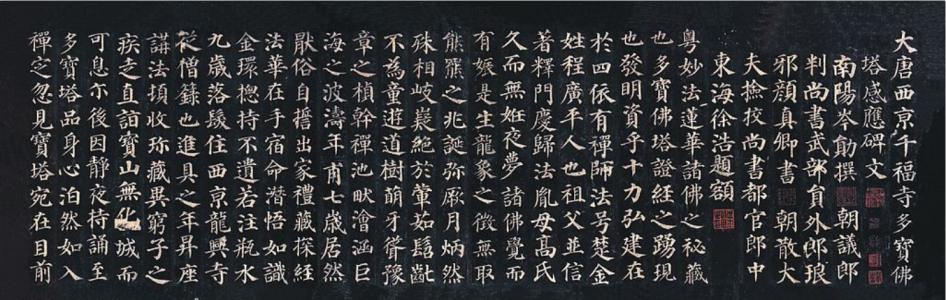 大唐西京千福寺多寶佛
塔感應碑文
南陽岑勛撰 朝議郎
判尚書武部員外郎琅
邪顏真卿書 朝散大
夫撿挍尚書都官郎中
東海徐浩題額
粵妙法蓮華諸佛之秘藏
也多寶佛塔證經之踴現
也發明資乎十力弘建在
於四依有禪師法号楚金
姓程廣平人也祖父並信
著釋門慶歸法胤母高氏
久而無姙夜夢諸佛覺而
有娠是生龍象之徵無取
熊羆之兆誕弥厥月炳然
殊相岐嶷絕於葷茹髫齔
不為童遊道樹萌牙聳豫
章之楨幹禪池畎澮涵巨
海之波濤年甫七歲居然
猒俗自誓出家禮藏探經
法華在手宿命潛悟如識
金環揔持不遺若注瓶水
九歲落髮住西京龍興寺
從僧籙也進具之年昇座
講法頃收珎藏異窮子之
疾走直詣寶山無化城而
可息尒後因靜夜持誦至
多寶塔品身心泊然如入
禪定忽見寶塔宛在目前